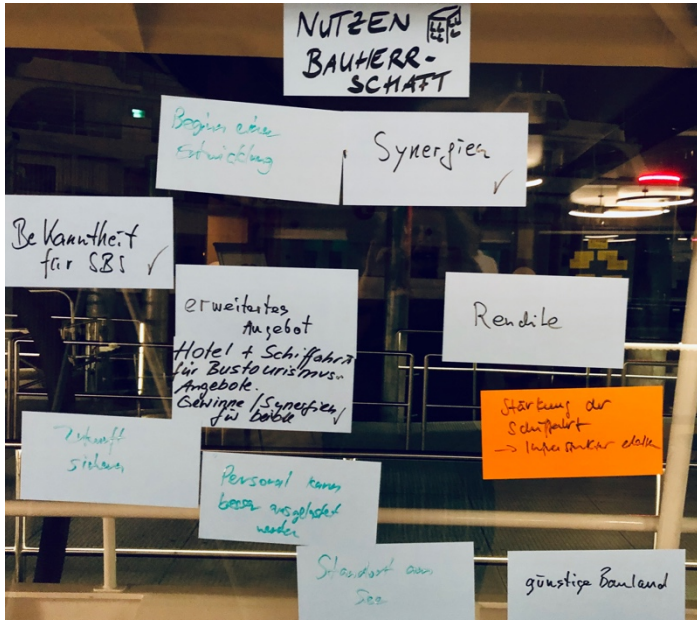 NUTZEN
BAUHERR-
SCHAFT
Beginn einer
Entwicklung
Synergien
Bekanntheit
für SBS
erweitertes
Angebot
Hotel + Schiffahrt
für Bustourismus-
Angebote.
Gewinne / Synergien
für beide
Rendite
Stärkung der
Schiffahrt
→
Zukunft
sichern
Personal kann
besser ausgelastet
werden
Standort am
See
günstige Bauland